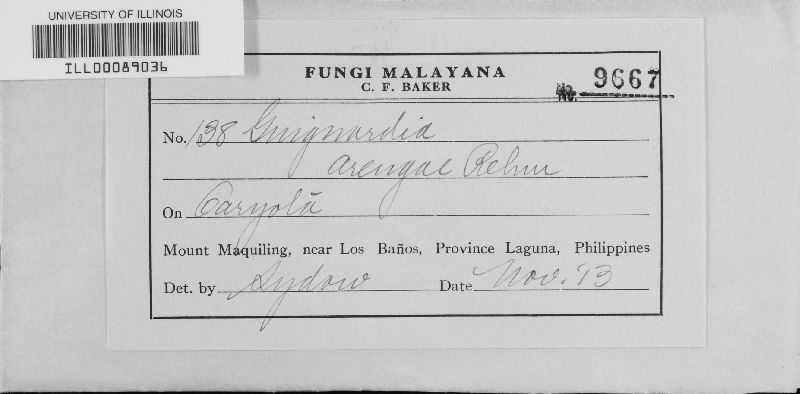 UNIVERSITY OF ILLINOIS
ILL00089036
FUNGI MALAYANA
C. F. BAKER
No. 9667
No. 138 Guignardia
arengae Rehm
On Caryota
Mount Maquiling, near Los Baños, Province Laguna, Philippines
Det. by Sydow Date Nov. '13